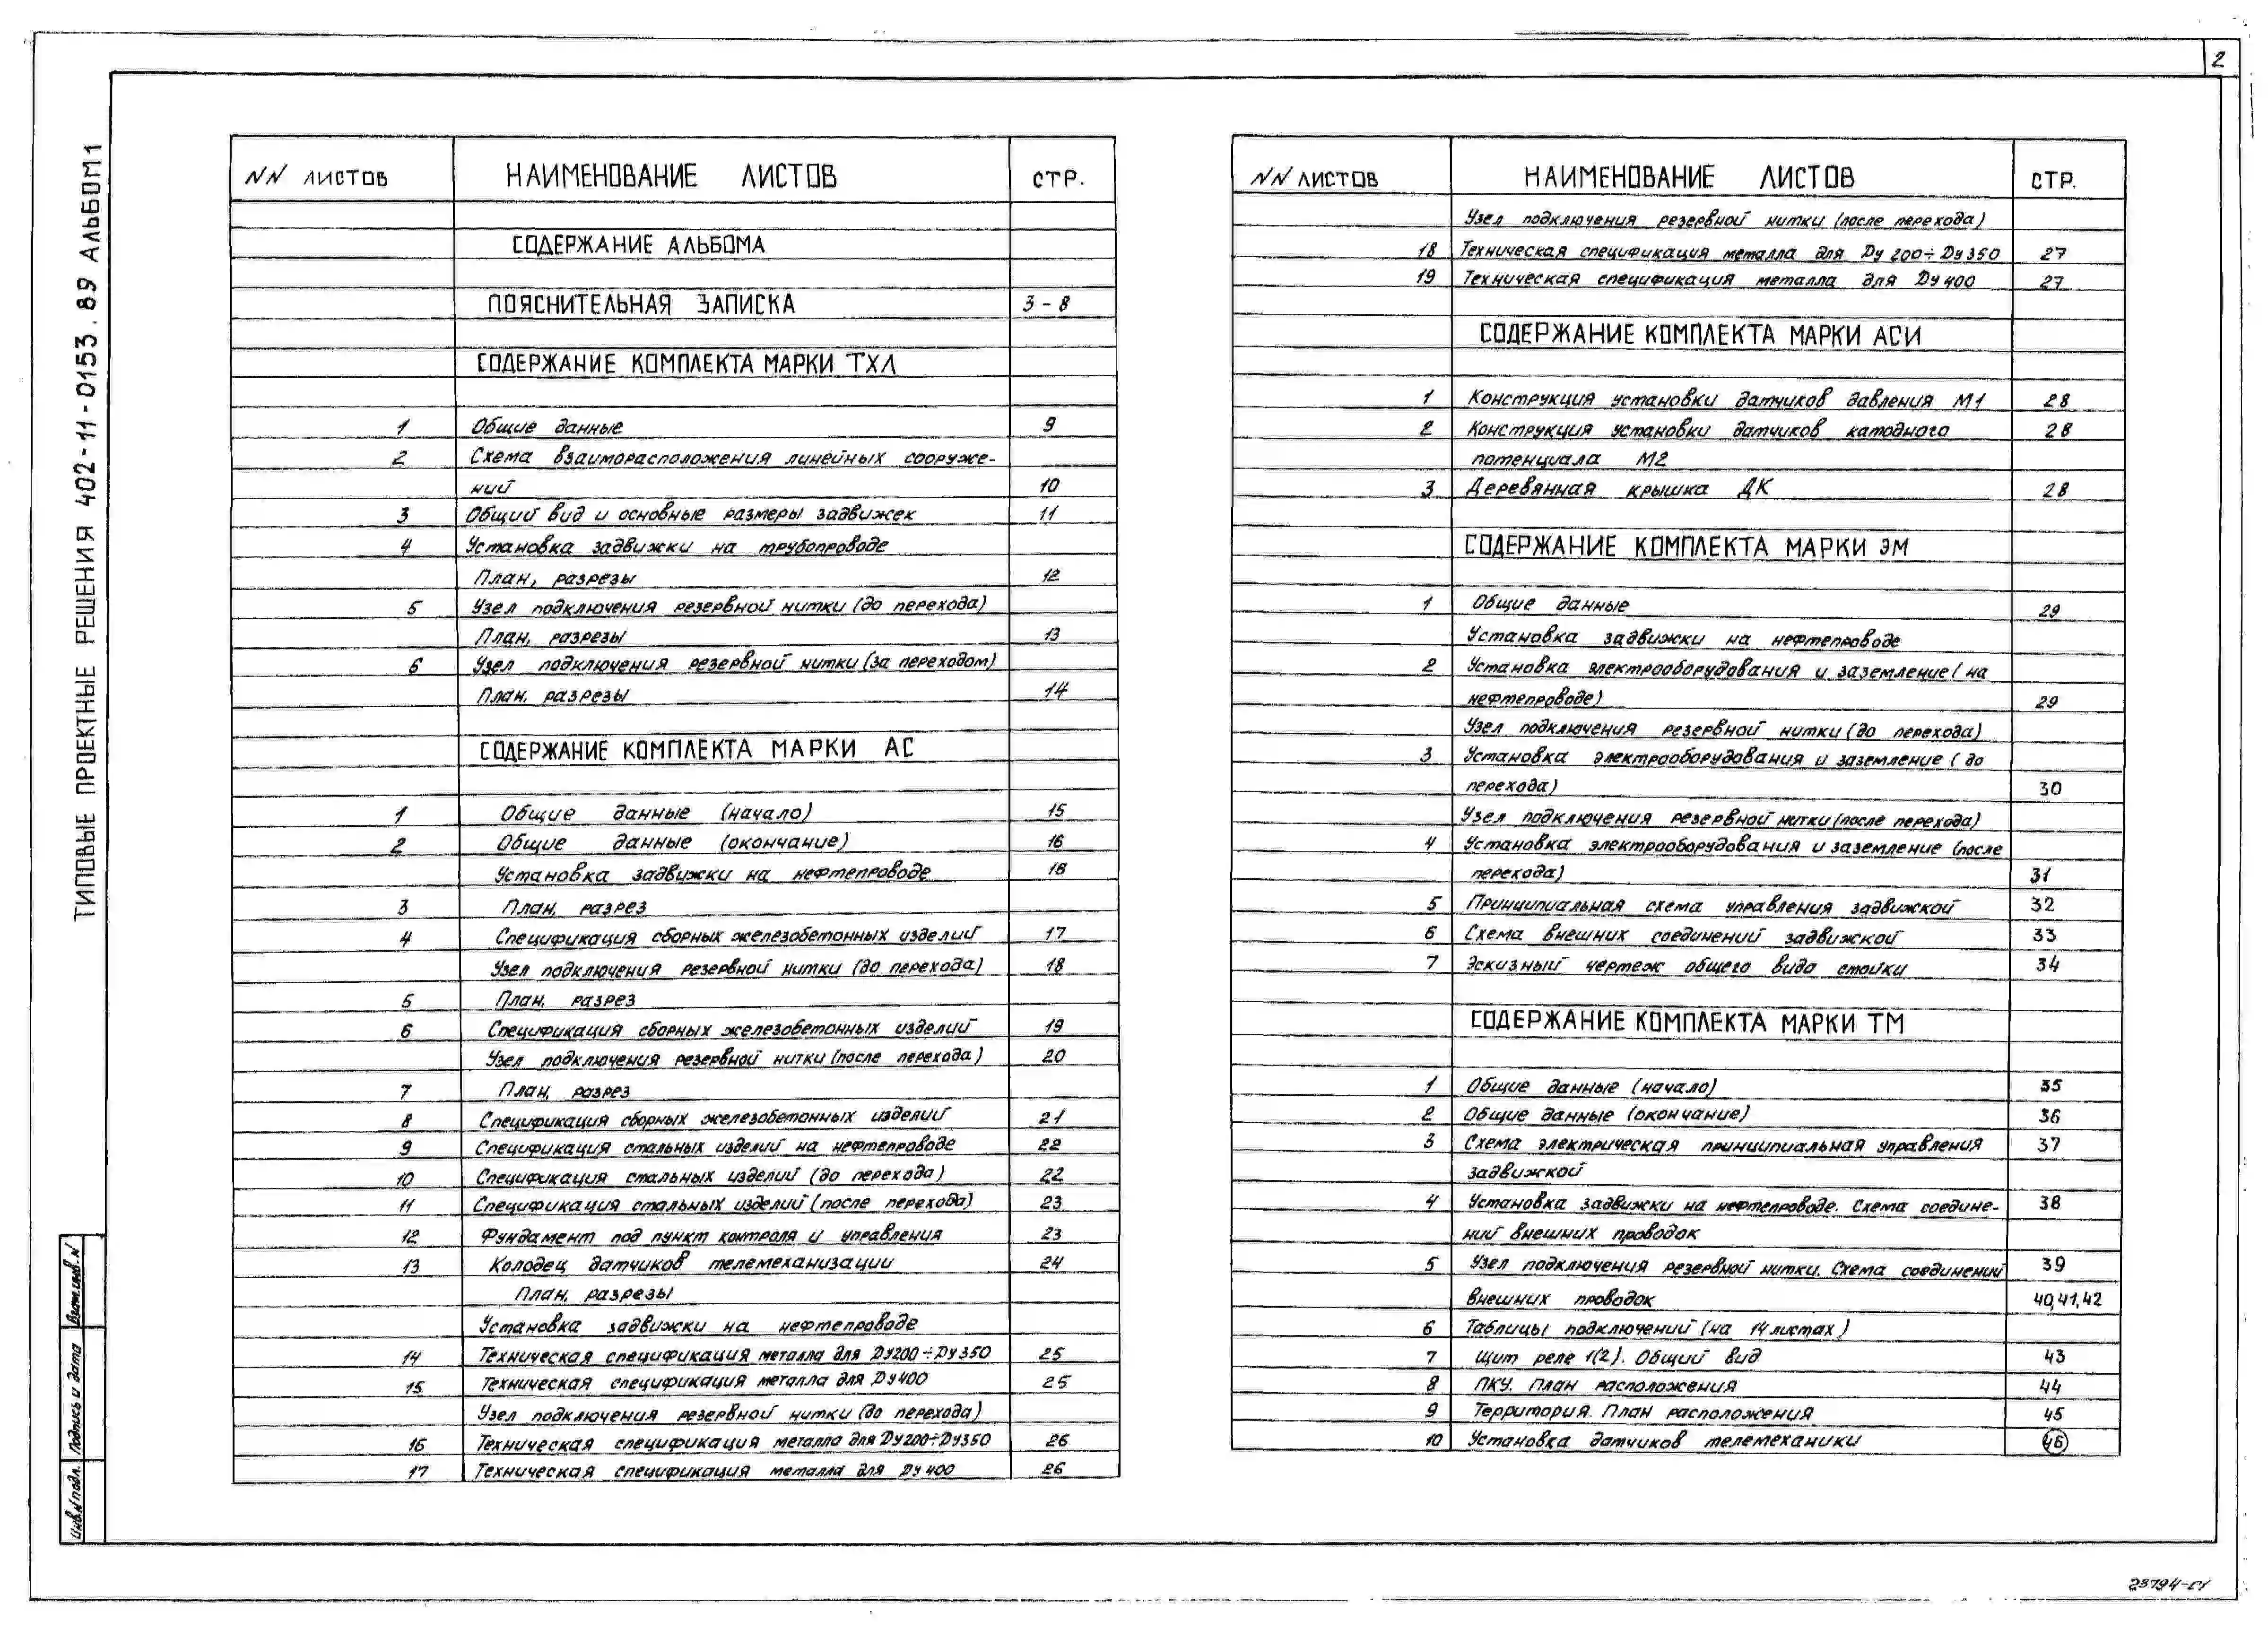 2
ТИПОВЫЕ ПРОЕКТНЫЕ РЕШЕНИЯ 402-11-0153.89 АЛЬБОМ 1
NN ЛИСТОВ НАИМЕНОВАНИЕ ЛИСТОВ СТР.
СОДЕРЖАНИЕ АЛЬБОМА
ПОЯСНИТЕЛЬНАЯ ЗАПИСКА 3-8
СОДЕРЖАНИЕ КОМПЛЕКТА МАРКИ ТХЛ
1 Общие данные 9
2 Схема взаиморасположения линейных сооруже-
ний 10
3 Общий вид и основные размеры задвижек 11
4 Установка задвижки на трубопроводе
План, разрезы 12
5 Узел подключения резервной нитки (до перехода)
План, разрезы 13
6 Узел подключения резервной нитки (за переходом)
План, разрезы 14
СОДЕРЖАНИЕ КОМПЛЕКТА МАРКИ АС
1 Общие данные (начало) 15
2 Общие данные (окончание) 16
Установка задвижки на нефтепроводе 16
3 План, разрез
4 Спецификация сборных железобетонных изделий 17
Узел подключения резервной нитки (до перехода) 18
5 План, разрез
6 Спецификация сборных железобетонных изделий 19
Узел подключения резервной нитки (после перехода) 20
7 План, разрез
8 Спецификация сборных железобетонных изделий 21
9 Спецификация стальных изделий на нефтепроводе 22
10 Спецификация стальных изделий (до перехода) 22
11 Спецификация стальных изделий (после перехода) 23
12 Фундамент под пункт контроля и управления 23
13 Колодец датчиков телемеханизации 24
План, разрезы
Установка задвижки на нефтепроводе
14 Техническая спецификация металла для Ду200÷Ду350 25
15 Техническая спецификация металла для Ду400 25
Узел подключения резервной нитки (до перехода)
16 Техническая спецификация металла для Ду200÷Ду350 26
17 Техническая спецификация металла для Ду 400 26
NN ЛИСТОВ НАИМЕНОВАНИЕ ЛИСТОВ СТР.
Узел подключения резервной нитки (после перехода)
18 Техническая спецификация металла для Ду 200÷Ду350 27
19 Техническая спецификация металла для Ду 400 27
СОДЕРЖАНИЕ КОМПЛЕКТА МАРКИ АСИ
1 Конструкция установки датчиков давления М1 28
2 Конструкция установки датчиков катодного 28
потенциала М2
3 Деревянная крышка ДК 28
СОДЕРЖАНИЕ КОМПЛЕКТА МАРКИ ЭМ
1 Общие данные 29
Установка задвижки на нефтепроводе
2 Установка электрооборудования и заземление (на
нефтепроводе) 29
Узел подключения резервной нитки (до перехода)
3 Установка электрооборудования и заземление (до
перехода) 30
Узел подключения резервной нитки (после перехода)
4 Установка электрооборудования и заземление (после
перехода) 31
5 Принципиальная схема управления задвижкой 32
6 Схема внешних соединений задвижкой 33
7 Эскизный чертеж общего вида стойки 34
СОДЕРЖАНИЕ КОМПЛЕКТА МАРКИ ТМ
1 Общие данные (начало) 35
2 Общие данные (окончание) 36
3 Схема электрическая принципиальная управления 37
задвижкой
4 Установка задвижки на нефтепроводе. Схема соедине- 38
ний внешних проводок
5 Узел подключения резервной нитки. Схема соединений 39
внешних проводок 40,41,42
6 Таблицы подключений (на 14 листах)
7 Щит реле 1(2). Общий вид 43
8 ПКУ. План расположения 44
9 Территория. План расположения 45
10 Установка датчиков телемеханики 46
Взам.инв.N
Подпись и дата
Инв.N подл.
23794-01